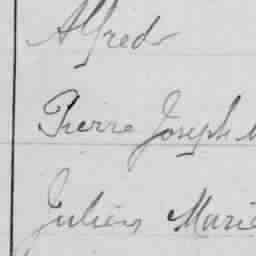 Alfred
Pierre Joseph
Julien Marie